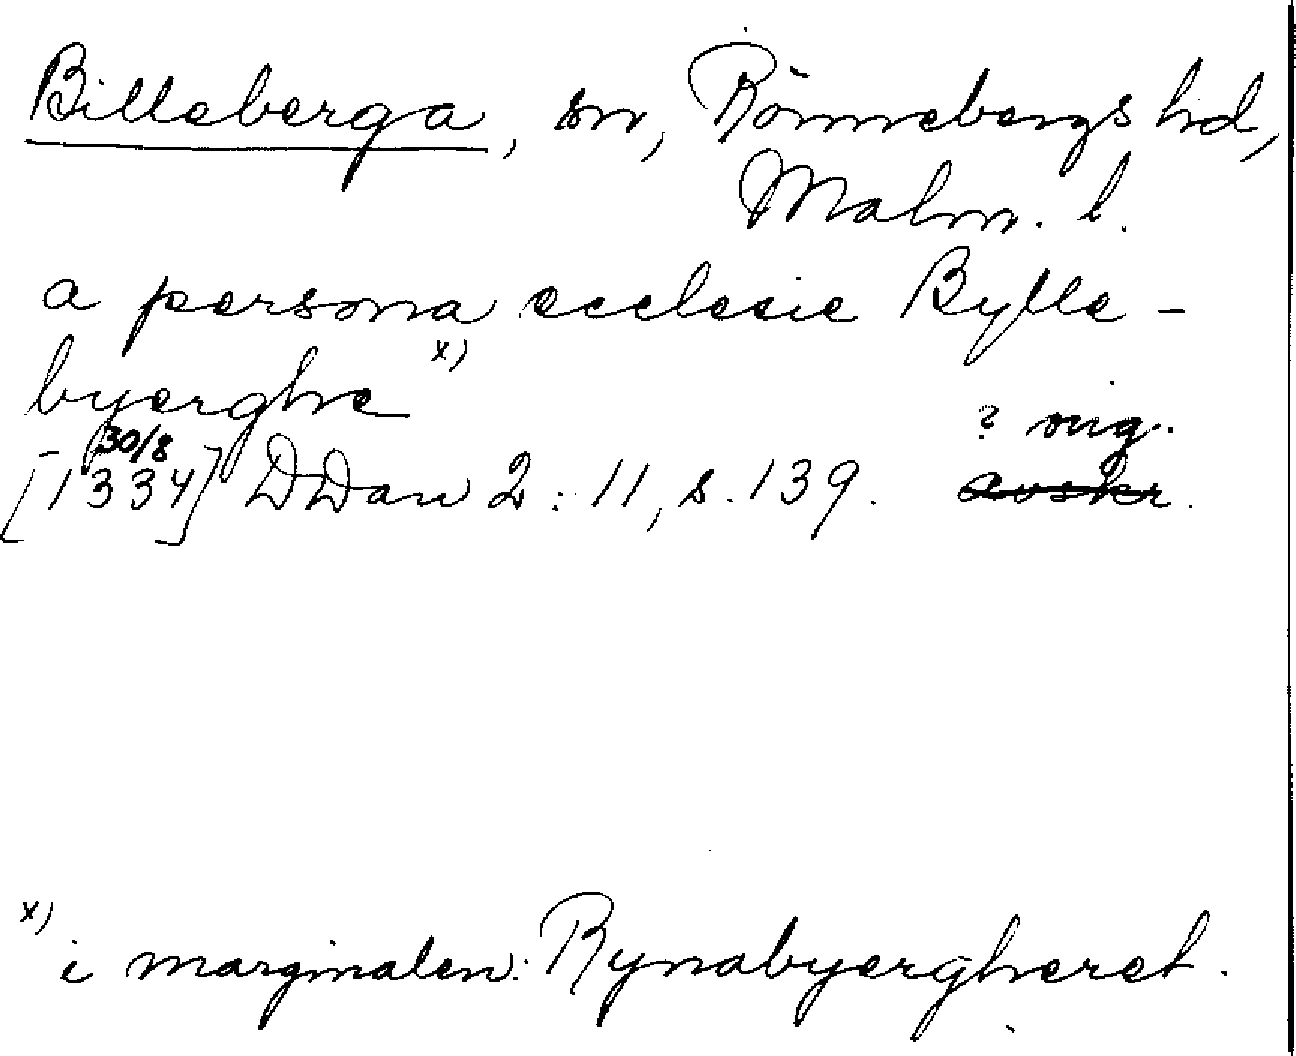 Billeberga, sn, Rönnebergs hd,
Malm. l.
a persona ecclesie Bylle-
byerghe x)
? orig.
30/8
[1334] DDan 2: 11, s. 139. avskr.
x) i marginalen: Rynabyergheret.